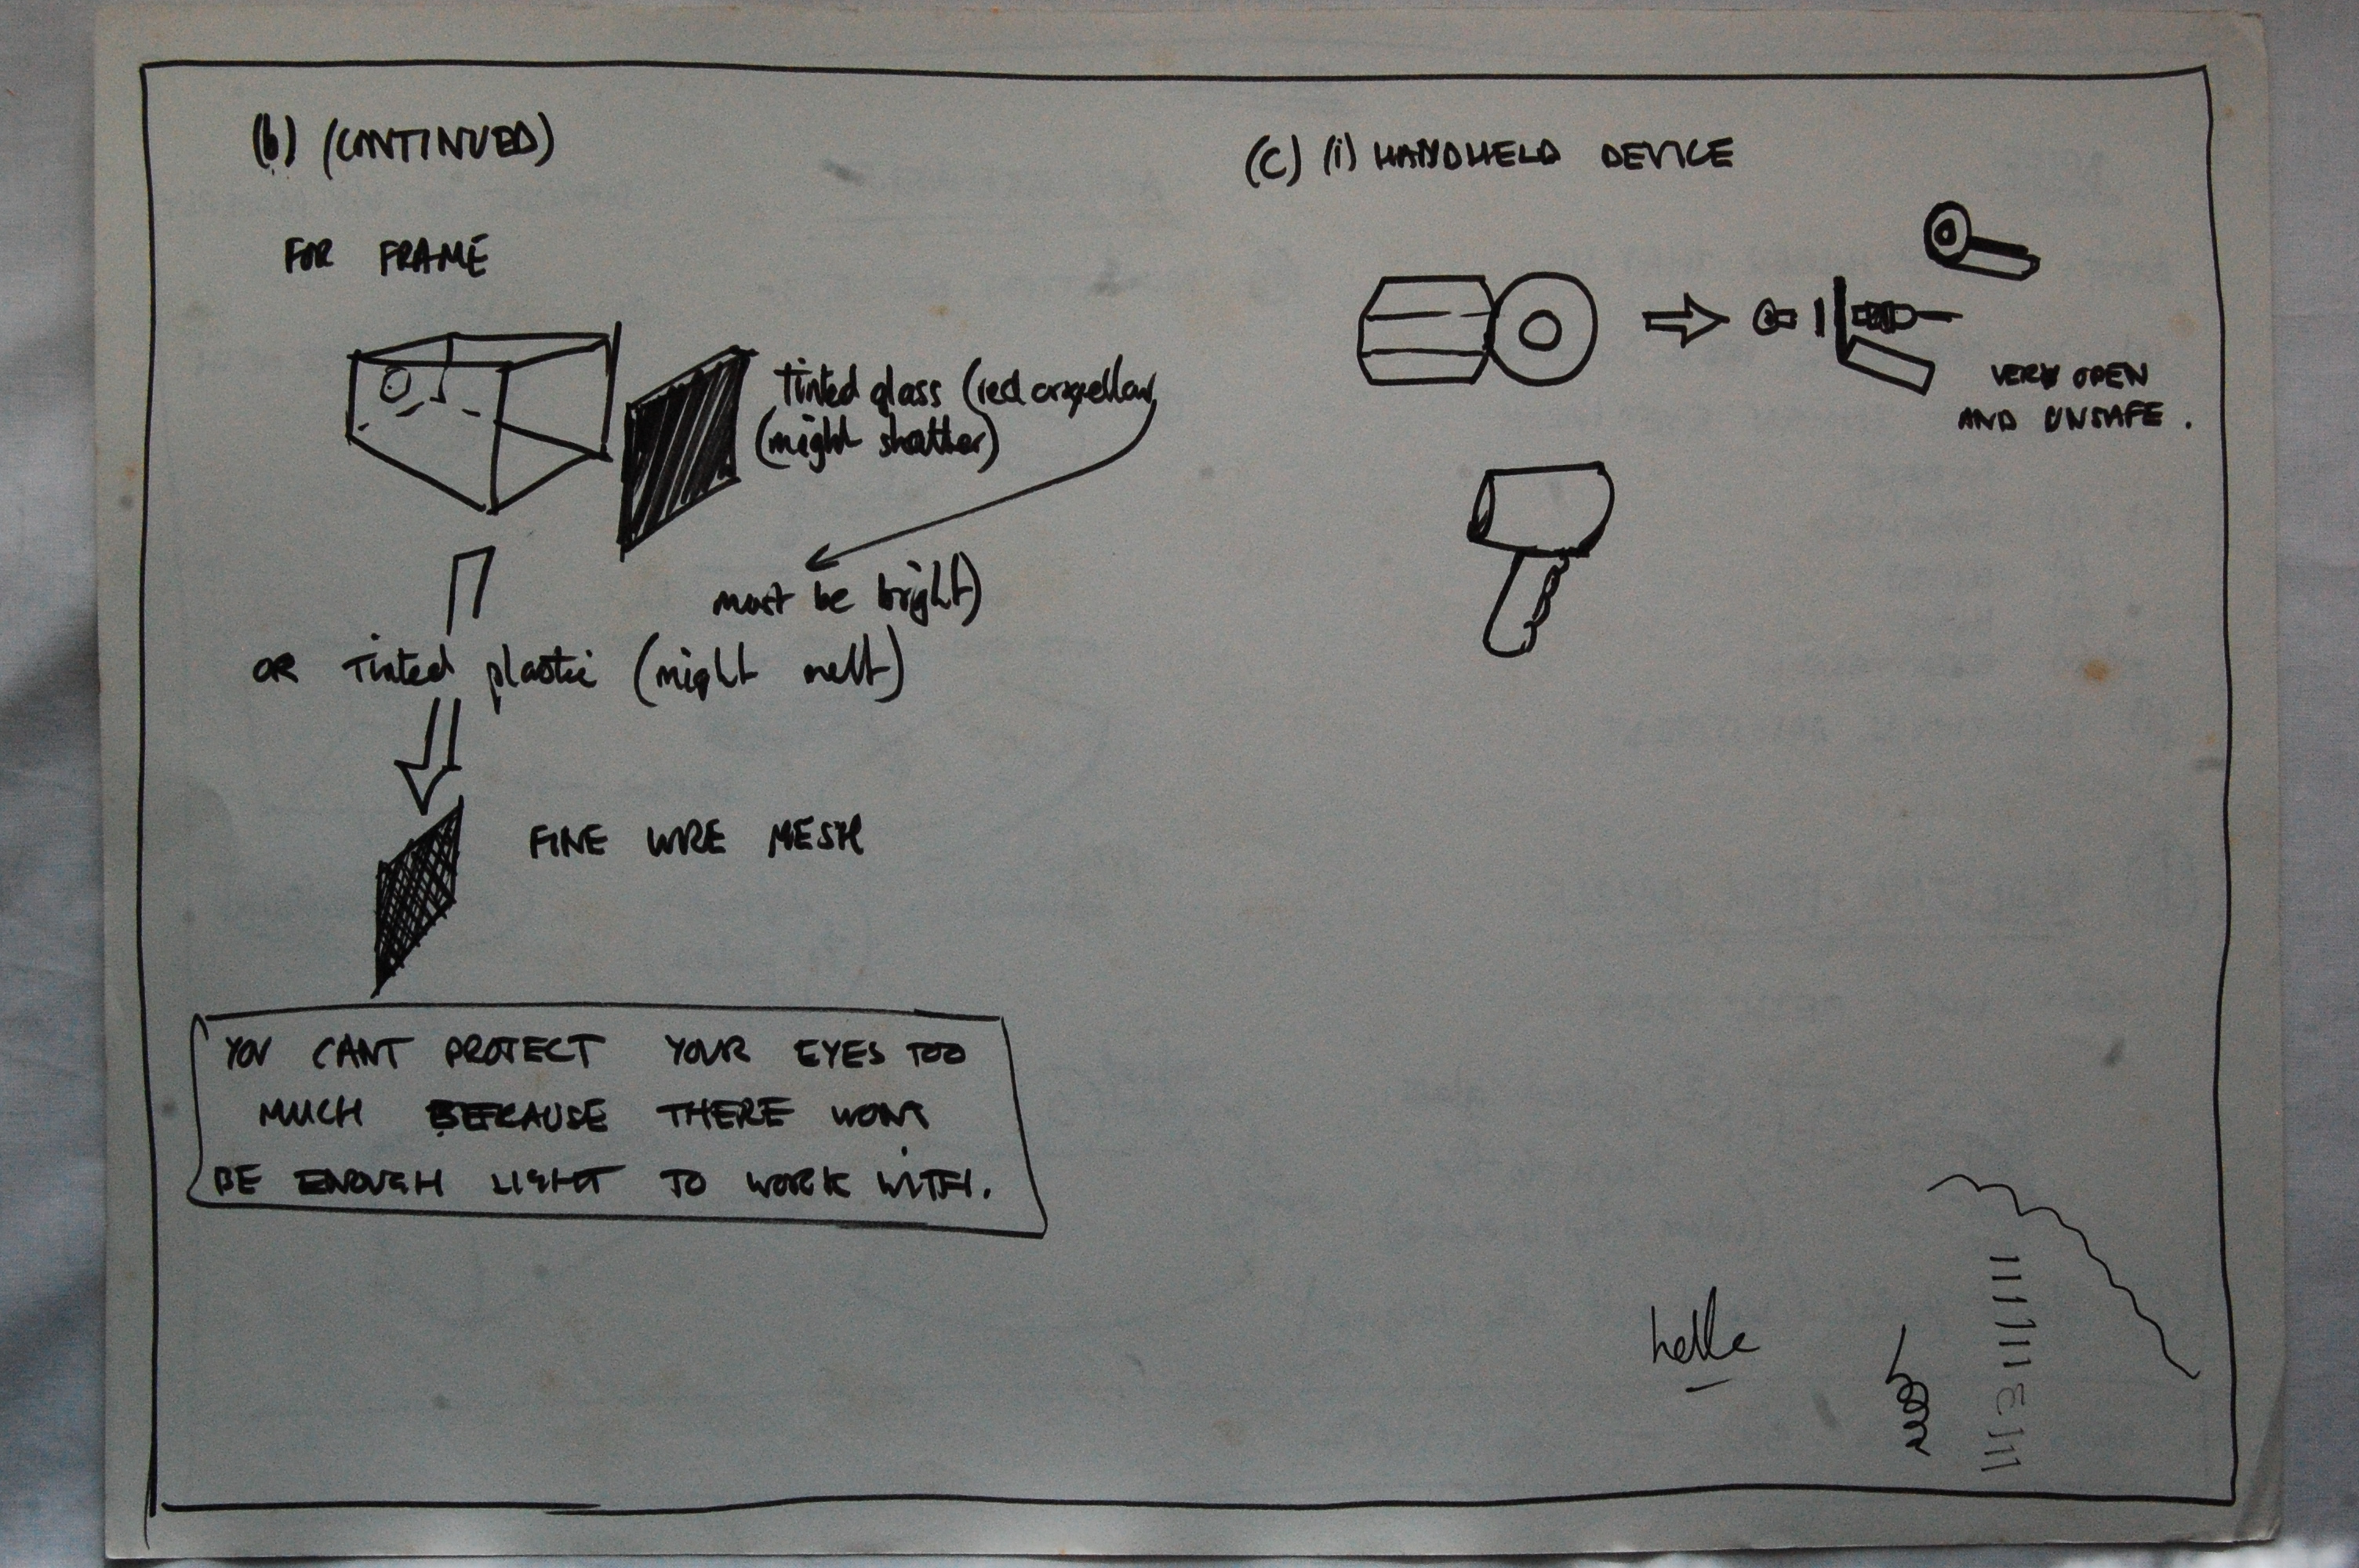 (b) (CONTINUED)
FOR FRAME
Tinted glass (red or yellow
(might shatter)
must be bright)
OR Tinted plastic (might melt)
FINE WIRE MESH
YOU CANT PROTECT YOUR EYES TOO
MUCH BECAUSE THERE WONT
BE ENOUGH LIGHT TO WORK WITH.
(C) (i) HANDHELD DEVICE
VERY OPEN
AND UNSAFE.